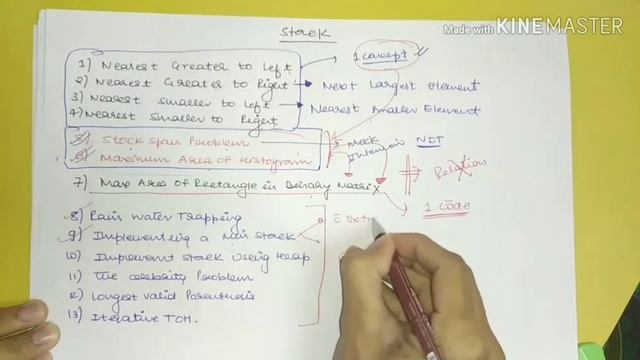 Made with KINEMASTER
Stack
1) Nearest Greater to Left
2) Nearest Greater to Right → Next Largest Element
3) Nearest Smaller to Left → Nearest Smaller Element
4) Nearest Smaller to Right
1 concept
5) Stock Span Problem
6) Maximum Area of Histogram
mock
NIT
Relation
7) Max Area of Rectangle in Binary Matrix
1 Code
8) Rain Water Trapping
9) Implementing a Min Stack
Extr
10) Implement Stack Using Heap
11) The Celebrity Problem
12) Longest Valid Parenthesis
13) Iterative TOH.